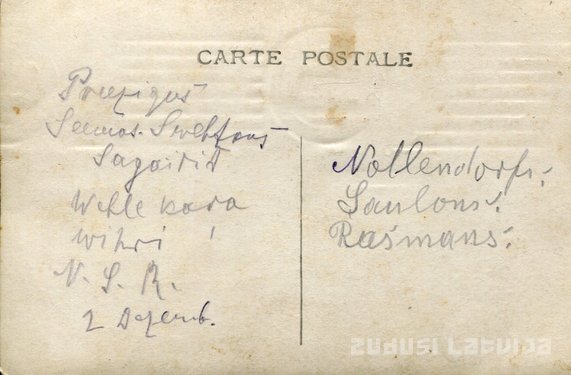 CARTE POSTALE
Preezigus
Seemas Swehtkus
Sagaidit
Wehle kara
wihri !
N. S. R.
2 Dezemb.
Nollendorfs.
Saulons.
Rasmans.
zudusi Latvija